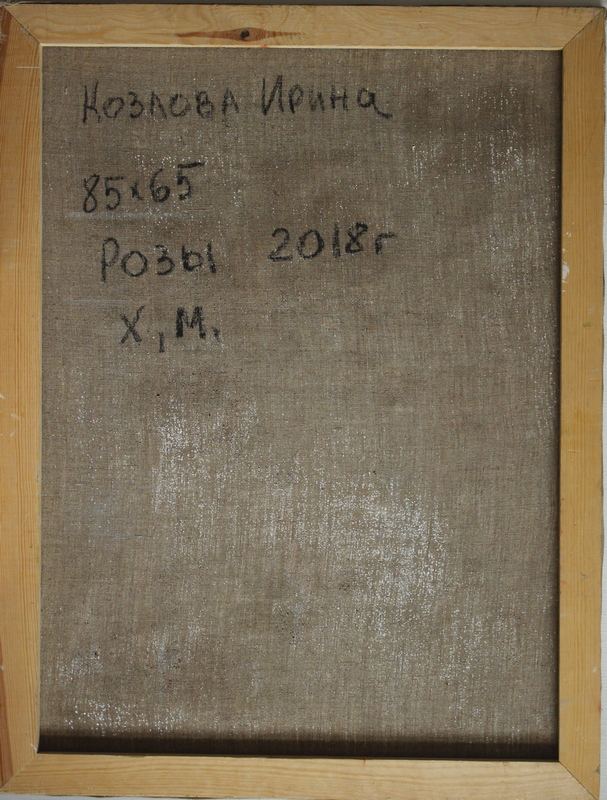 Козлова Ирина
85х65
Розы 2018г
Х, М.